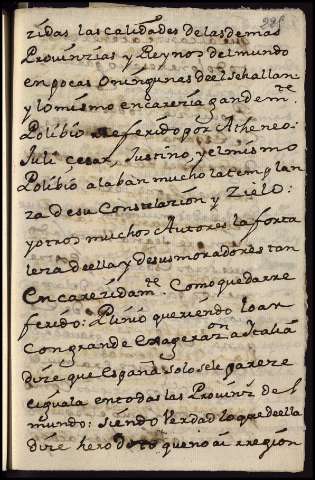 zidas las calidades de las demas
Provinzias y Reynos del mundo
en pocas O ningunas de el se hallan
y lo mismo encareria gandemte
Polibio referido por Atheneo:
Juli cesar, Justino, y el mismo
Polibio alaban mucho la templan
za de su Constelazion y Zielo:
y otros muchos Autores la forta
leza de ella y de sus moradores tan
Encarezidamte. Como queda rre
ferido: Plinio queriendo loar
con grande exagerazon a Italia
dize que España solo se le pareze
e iguala en todas las Provinz del
mundo: siendo Verdad lo que de ella
dize herodoto que no ai rregion